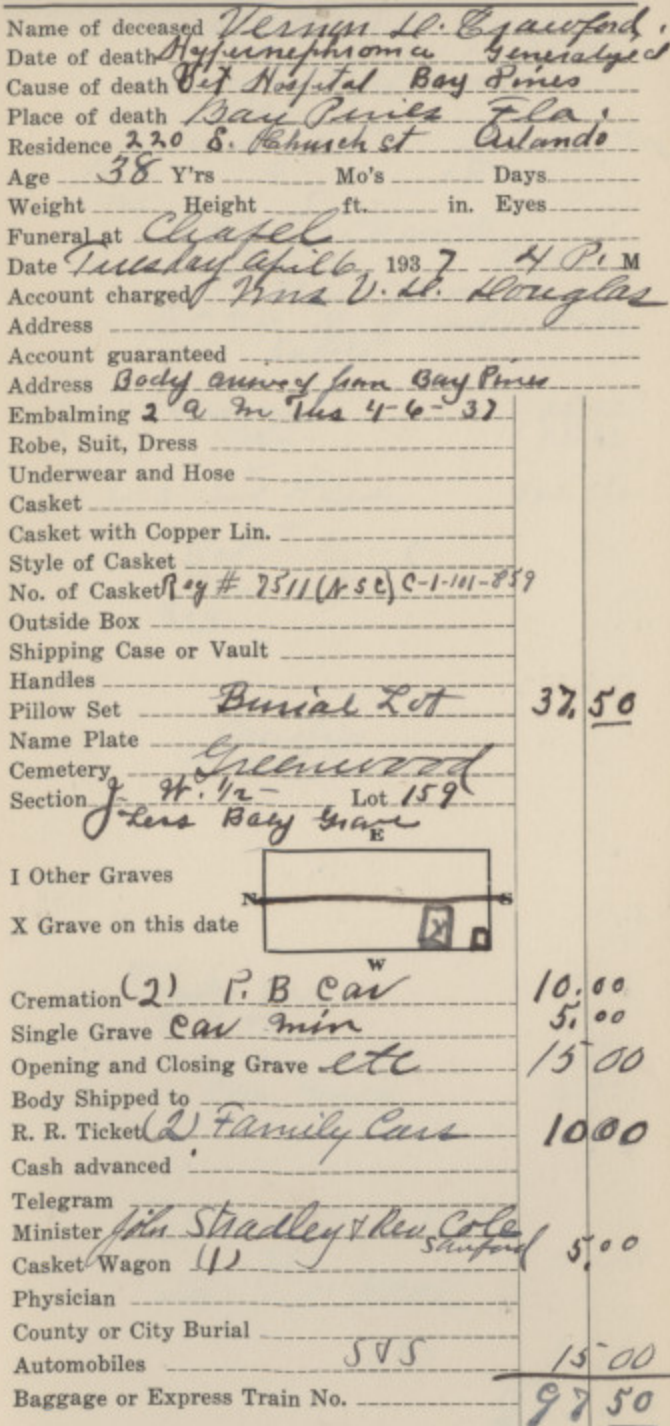 Name of deceased Vernon H. Crawford.
Date of death Hypernephroma Generalized
Cause of death Vet Hospital Bay Pines
Place of death Bay Pines Fla.
Residence 220 S. Church st Orlando
Age 38 Y'rs Mo's Days
Weight Height ft. in. Eyes
Funeral at Chapel
Date Tuesday April 6, 1937 4 P. M
Account charged Mrs V. H. Douglas
Address
Account guaranteed
Address Body arrived from Bay Pines
Embalming 2 a m Tus 4-6-37
Robe, Suit, Dress
Underwear and Hose
Casket
Casket with Copper Lin.
Style of Casket
No. of Casket Reg # 7511 (N S C) C-1-101-859
Outside Box
Shipping Case or Vault
Handles
Pillow Set Burial Lot 37.50
Name Plate
Cemetery Greenwood
Section J W. 1/2 Lot 159
Less Baby Grave
E
I Other Graves
N S
X Grave on this date X
W
Cremation (2) P. B Car 10.00
Single Grave Car min 5.00
Opening and Closing Grave etc 15 00
Body Shipped to
R. R. Ticket (2) Family Cars 10 00
Cash advanced
Telegram
Minister John Stradley & Rev. Cole
Sanford
Casket Wagon (1) 5.00
Physician
County or City Burial
Automobiles SVS 15 00
Baggage or Express Train No. 97 50